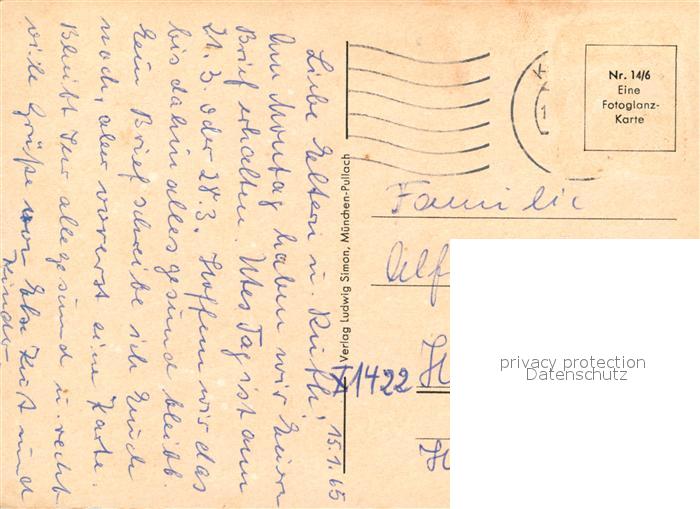 15.1.65
Liebe Eltern u. Ruth!
Am Montag haben wir Euren
Brief erhalten. Utes Tag ist am
21.3. oder 28.3. Hoffen wir das
bis dahin alles gesund bleibt.
Ein Brief schreibe ich Euch
noch, aber vorerst eine Karte.
Bleibt Ihr alle gesund u. recht
viele Grüße von Elsa Kurt und
Kinder
Verlag Ludwig Simon, München-Pullach
Nr. 14/6
Eine
Fotoglanz-
Karte
Familie
Alf
X1422
privacy protection
Datenschutz